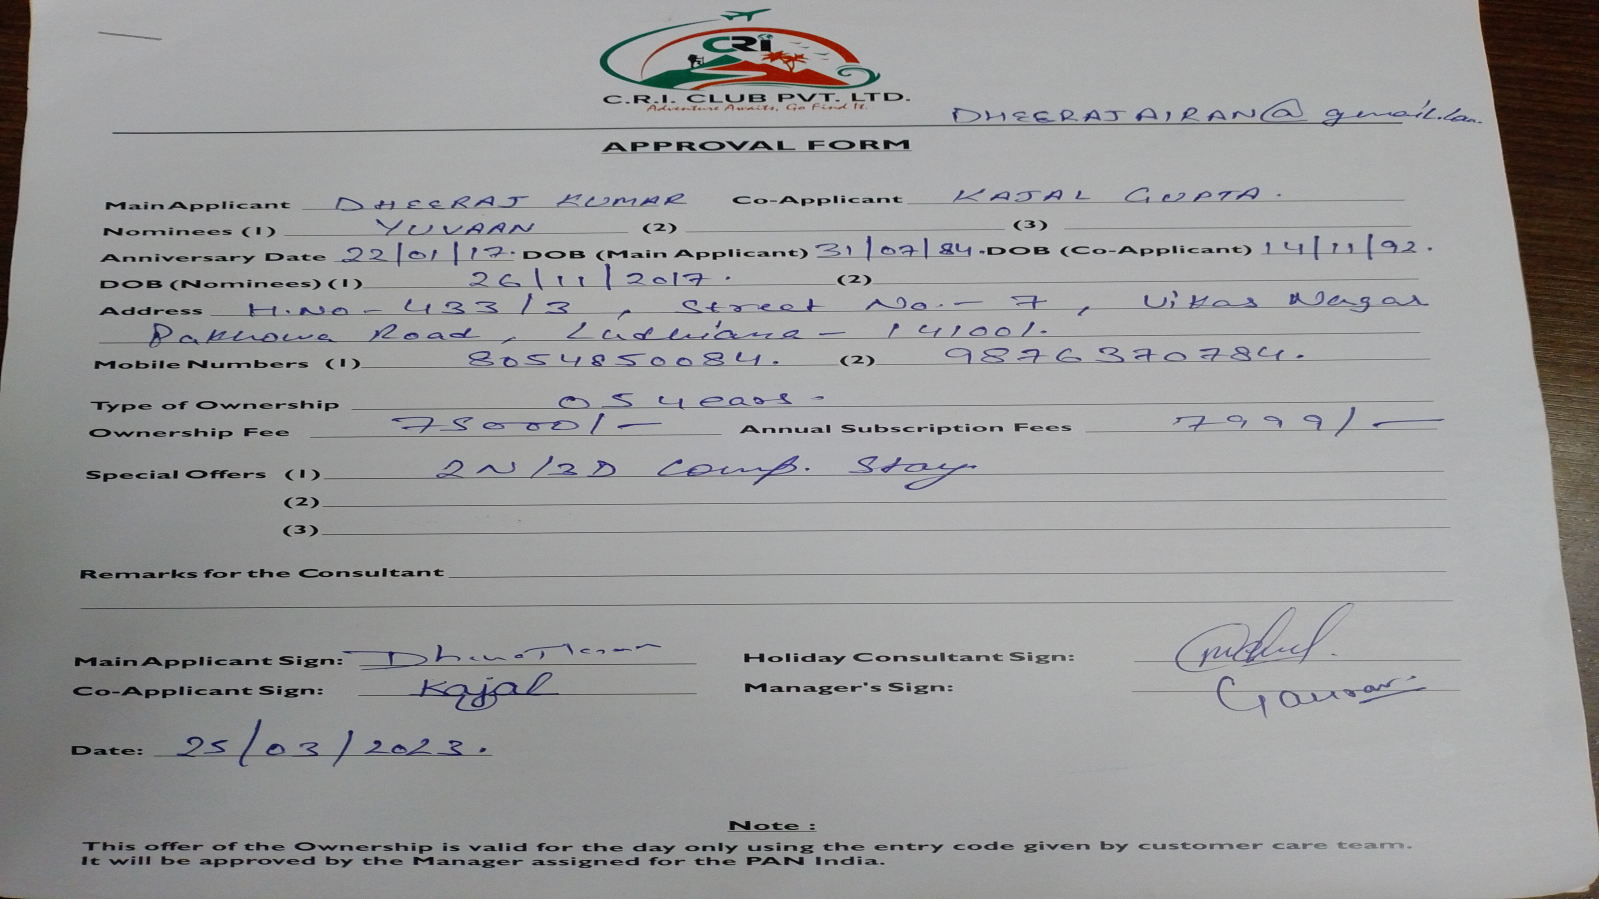 CRI
C.R.I. CLUB PVT. LTD.
Adventure Awaits, Go Find It.
DHEERAJAIRAN@gmail.com
APPROVAL FORM
Main Applicant DHEERAJ KUMAR Co-Applicant KAJAL GUPTA.
Nominees (1) YUVAAN (2) (3)
Anniversary Date 22/01/17. DOB (Main Applicant) 31/07/84. DOB (Co-Applicant) 14/11/92.
DOB (Nominees) (1) 26/11/2017. (2)
Address H.No - 433/3, Street No. - 7, Vikas Nagar
Pakhowa Road, Ludhiana - 141001.
Mobile Numbers (1) 8054850084. (2) 9876370784.
Type of Ownership 05 years.
Ownership Fee 75000/- Annual Subscription Fees 7999/-
Special Offers (1) 2N/3D Comp. Stay.
(2)
(3)
Remarks for the Consultant
Main Applicant Sign: Holiday Consultant Sign:
Co-Applicant Sign: Kajal Manager's Sign: Gaurav
Date: 25/03/2023.
Note :
This offer of the Ownership is valid for the day only using the entry code given by customer care team.
It will be approved by the Manager assigned for the PAN India.